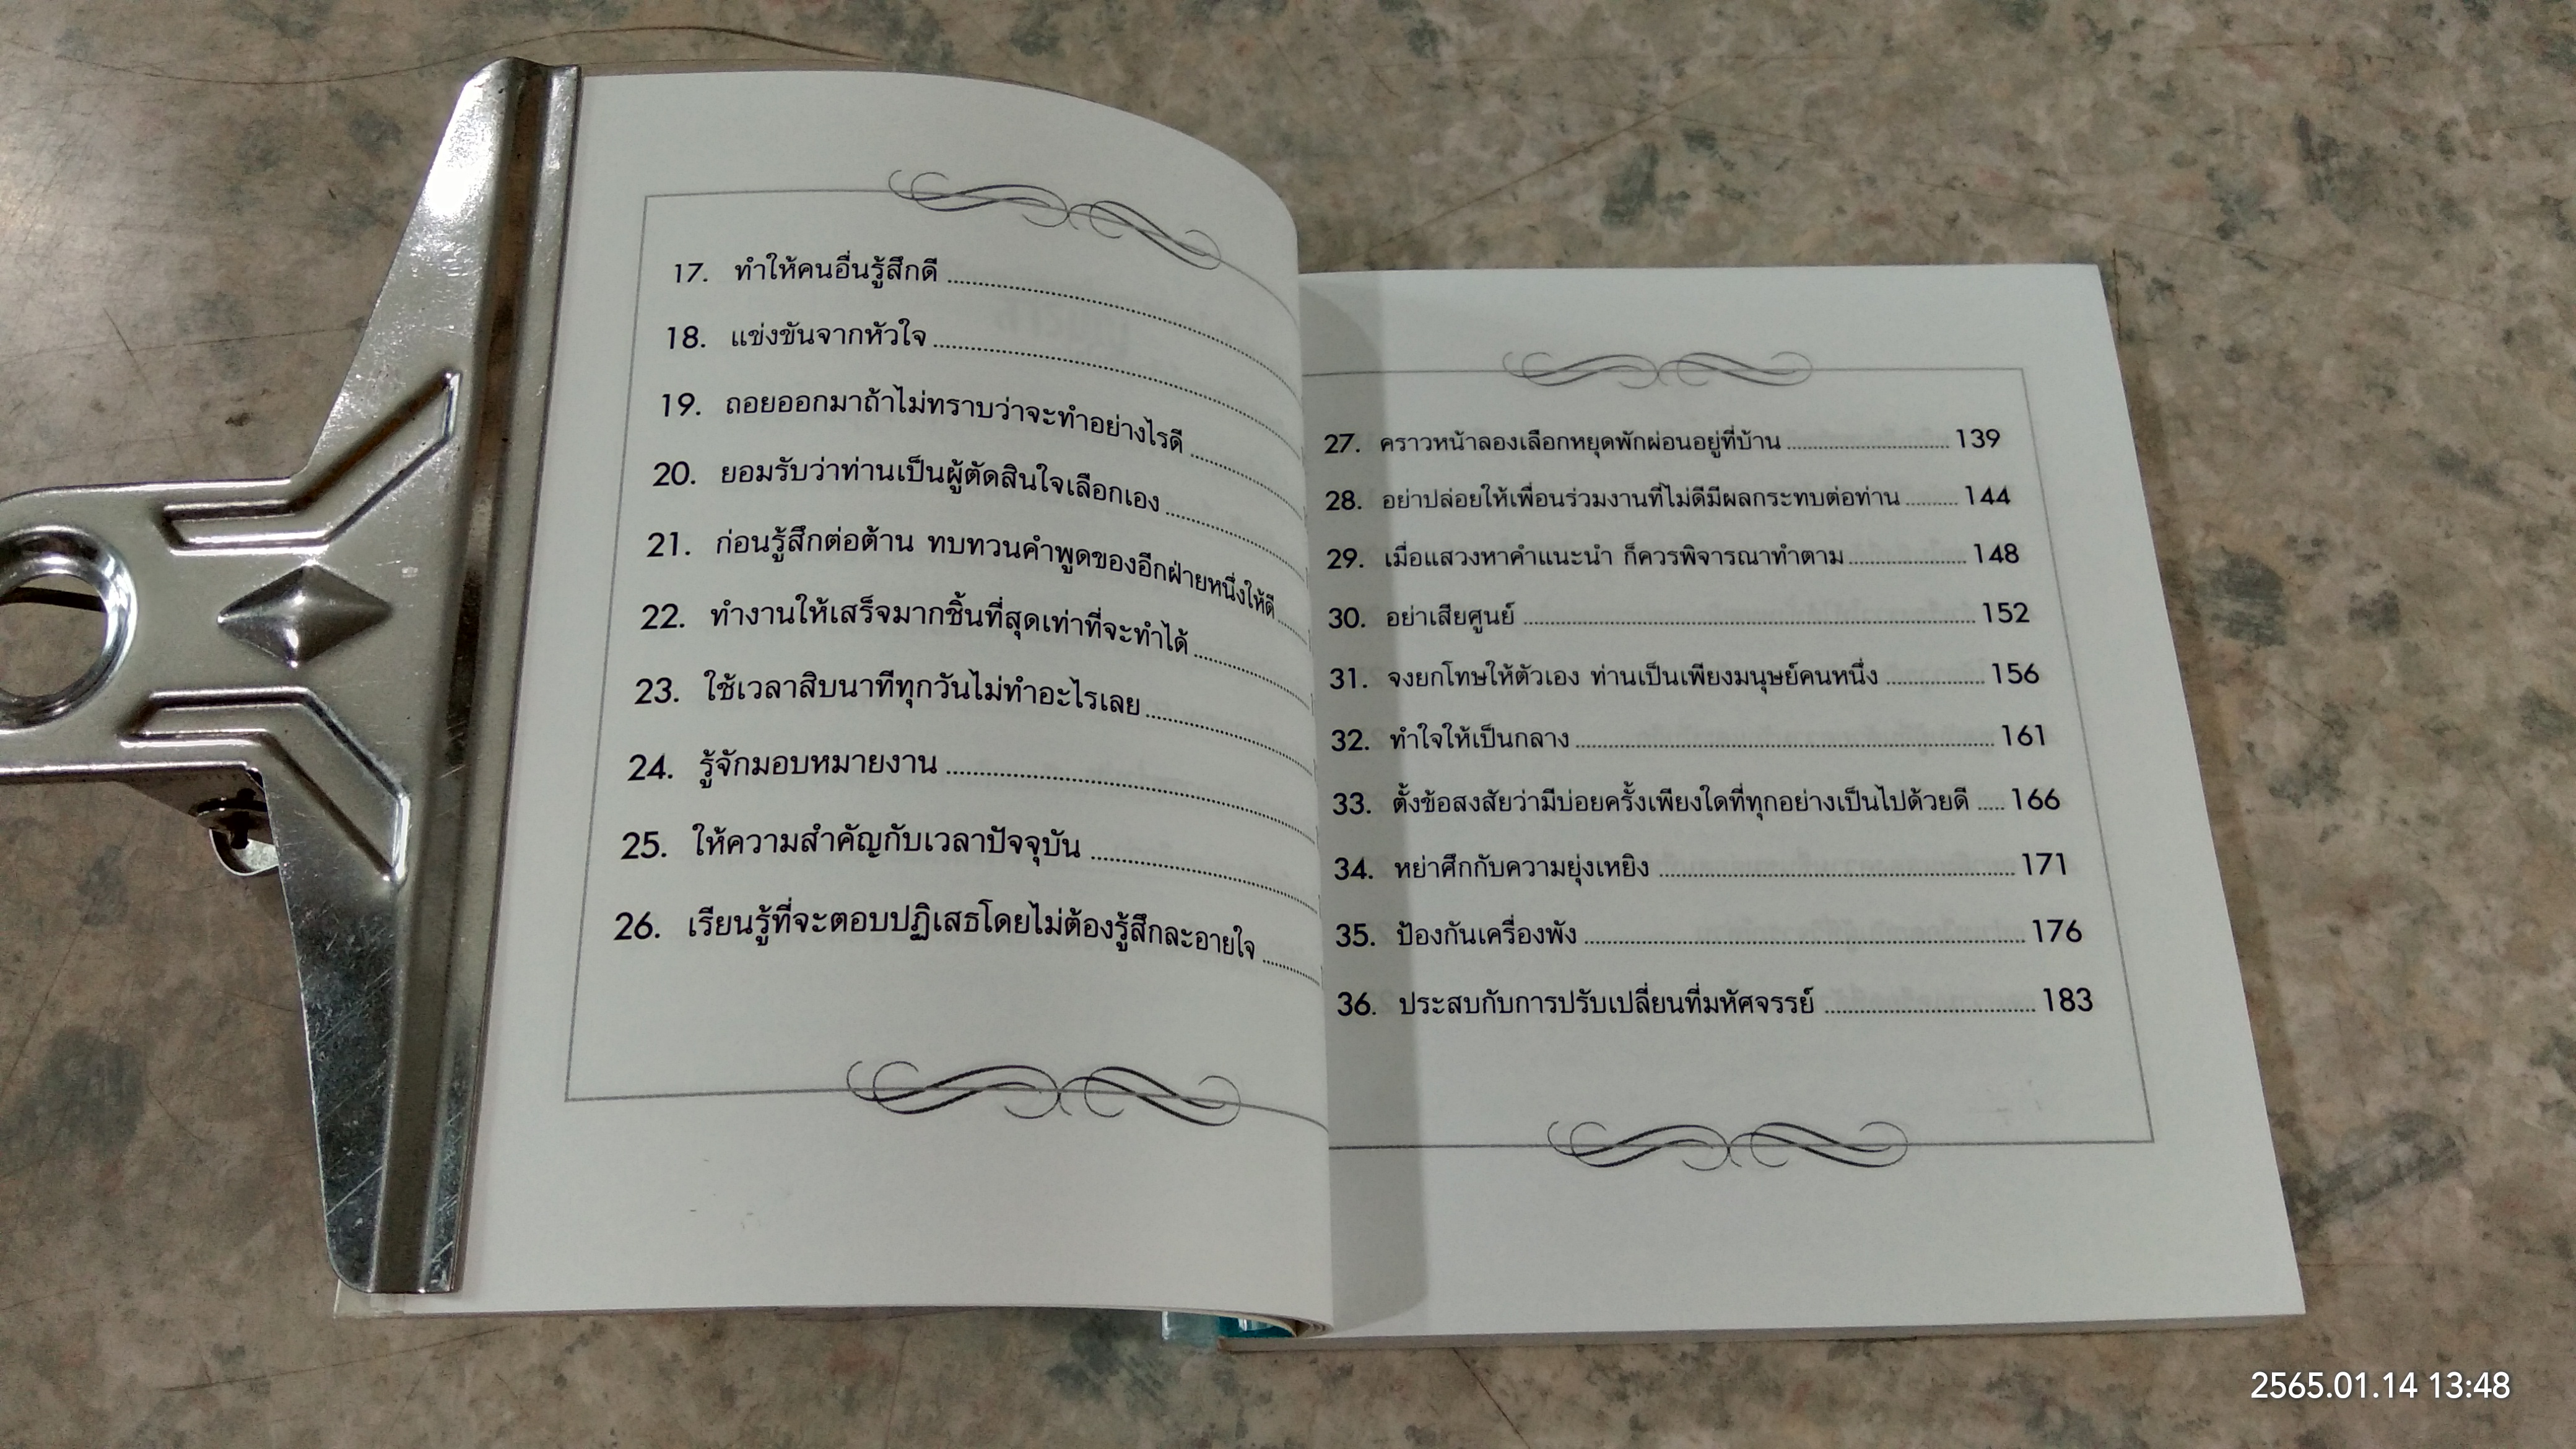 17. ทำให้คนอื่นรู้สึกดี
18. แข่งขันจากหัวใจ
19. ถอยออกมาถ้าไม่ทราบว่าจะทำอย่างไรดี
20. ยอมรับว่าท่านเป็นผู้ตัดสินใจเลือกเอง
21. ก่อนรู้สึกต่อต้าน ทบทวนคำพูดของอีกฝ่ายหนึ่งให้ดี
22. ทำงานให้เสร็จมากชิ้นที่สุดเท่าที่จะทำได้
23. ใช้เวลาสิบนาทีทุกวันไม่ทำอะไรเลย
24. รู้จักมอบหมายงาน
25. ให้ความสำคัญกับเวลาปัจจุบัน
26. เรียนรู้ที่จะตอบปฏิเสธโดยไม่ต้องรู้สึกละอายใจ
27. คราวหน้าลองเลือกหยุดพักผ่อนอยู่ที่บ้าน 139
28. อย่าปล่อยให้เพื่อนร่วมงานที่ไม่ดีมีผลกระทบต่อท่าน 144
29. เมื่อแสวงหาคำแนะนำ ก็ควรพิจารณาทำตาม 148
30. อย่าเสียศูนย์ 152
31. จงยกโทษให้ตัวเอง ท่านเป็นเพียงมนุษย์คนหนึ่ง 156
32. ทำใจให้เป็นกลาง 161
33. ตั้งข้อสงสัยว่ามีบ่อยครั้งเพียงใดที่ทุกอย่างเป็นไปด้วยดี 166
34. หย่าศึกกับความยุ่งเหยิง 171
35. ป้องกันเครื่องพัง 176
36. ประสบกับการปรับเปลี่ยนที่มหัศจรรย์ 183
2565.01.14 13:48